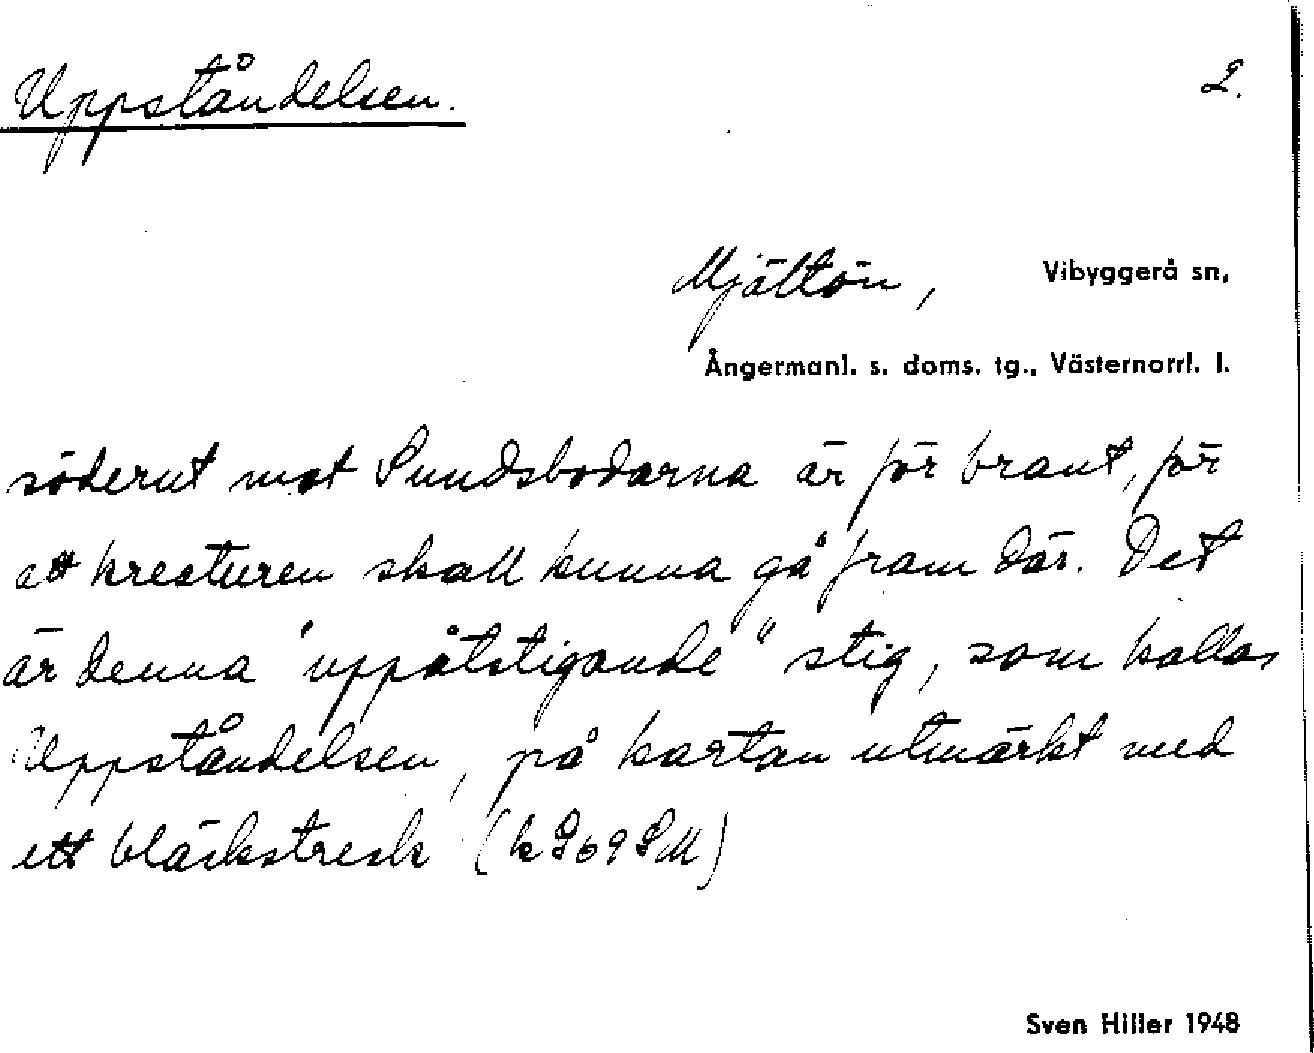 Uppståndelsen.
2.
Mjältön, Vibyggerå sn,
Ångermanl. s. doms. tg., Västernorrl. l.
söderut mot Sundsbodarna är för brant, för
att kreaturen skall kunna gå fram där. Det
är denna "uppåtstigande" stig, som kallas
Uppståndelsen, på kartan utmärkt med
ett bläckstreck
Sven Hiller 1948